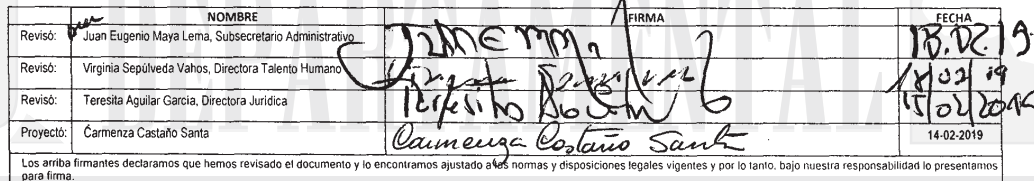 NOMBRE FIRMA FECHA
Revisó: Juan Eugenio Maya Lema, Subsecretario Administrativo 18.02.19
Revisó: Virginia Sepúlveda Vahos, Directora Talento Humano 18/02/19
Revisó: Teresita Aguilar García, Directora Jurídica Teresita Aguilar 15/02/2019
Proyectó: Carmenza Castaño Santa Carmenza Castaño Santa 14-02-2019
Los arriba firmantes declaramos que hemos revisado el documento y lo encontramos ajustado a las normas y disposiciones legales vigentes y por lo tanto, bajo nuestra responsabilidad lo presentamos
para firma.